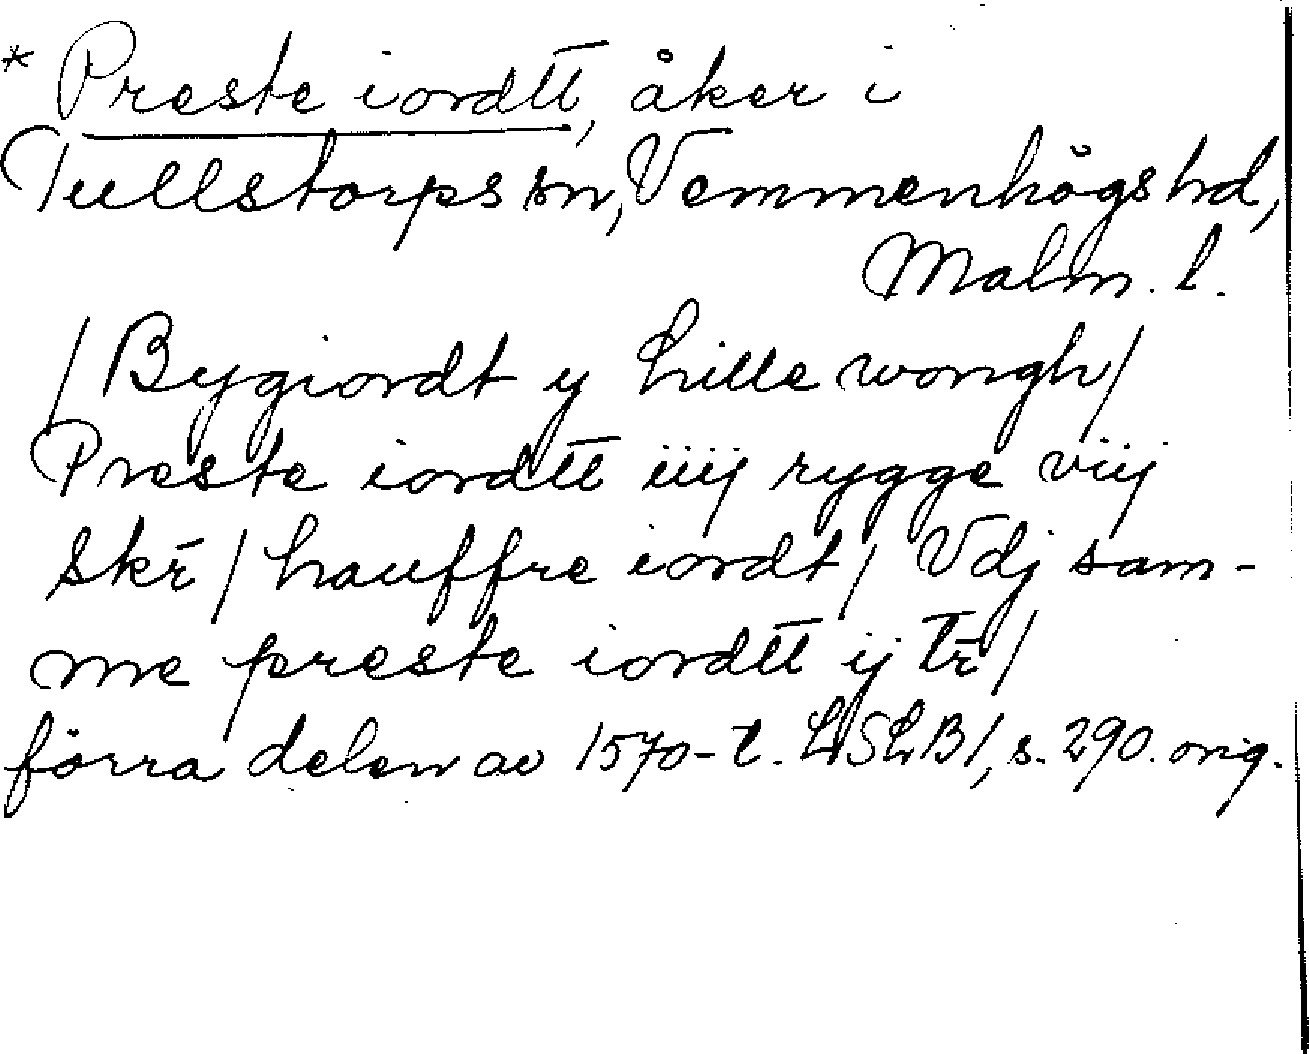 * Preste iordtt, åker i
Tullstorps sn, Vemmenhögs hd,
Malm. l.
/ Bygiordt y hille wongh /
Preste iordtt iiij rygge viij
skr̄ / hauffre iordt / Vdj sam-
me preste iordtt ij tr̄ /
förra delen av 1570-t. LSLB1, s. 290. orig.